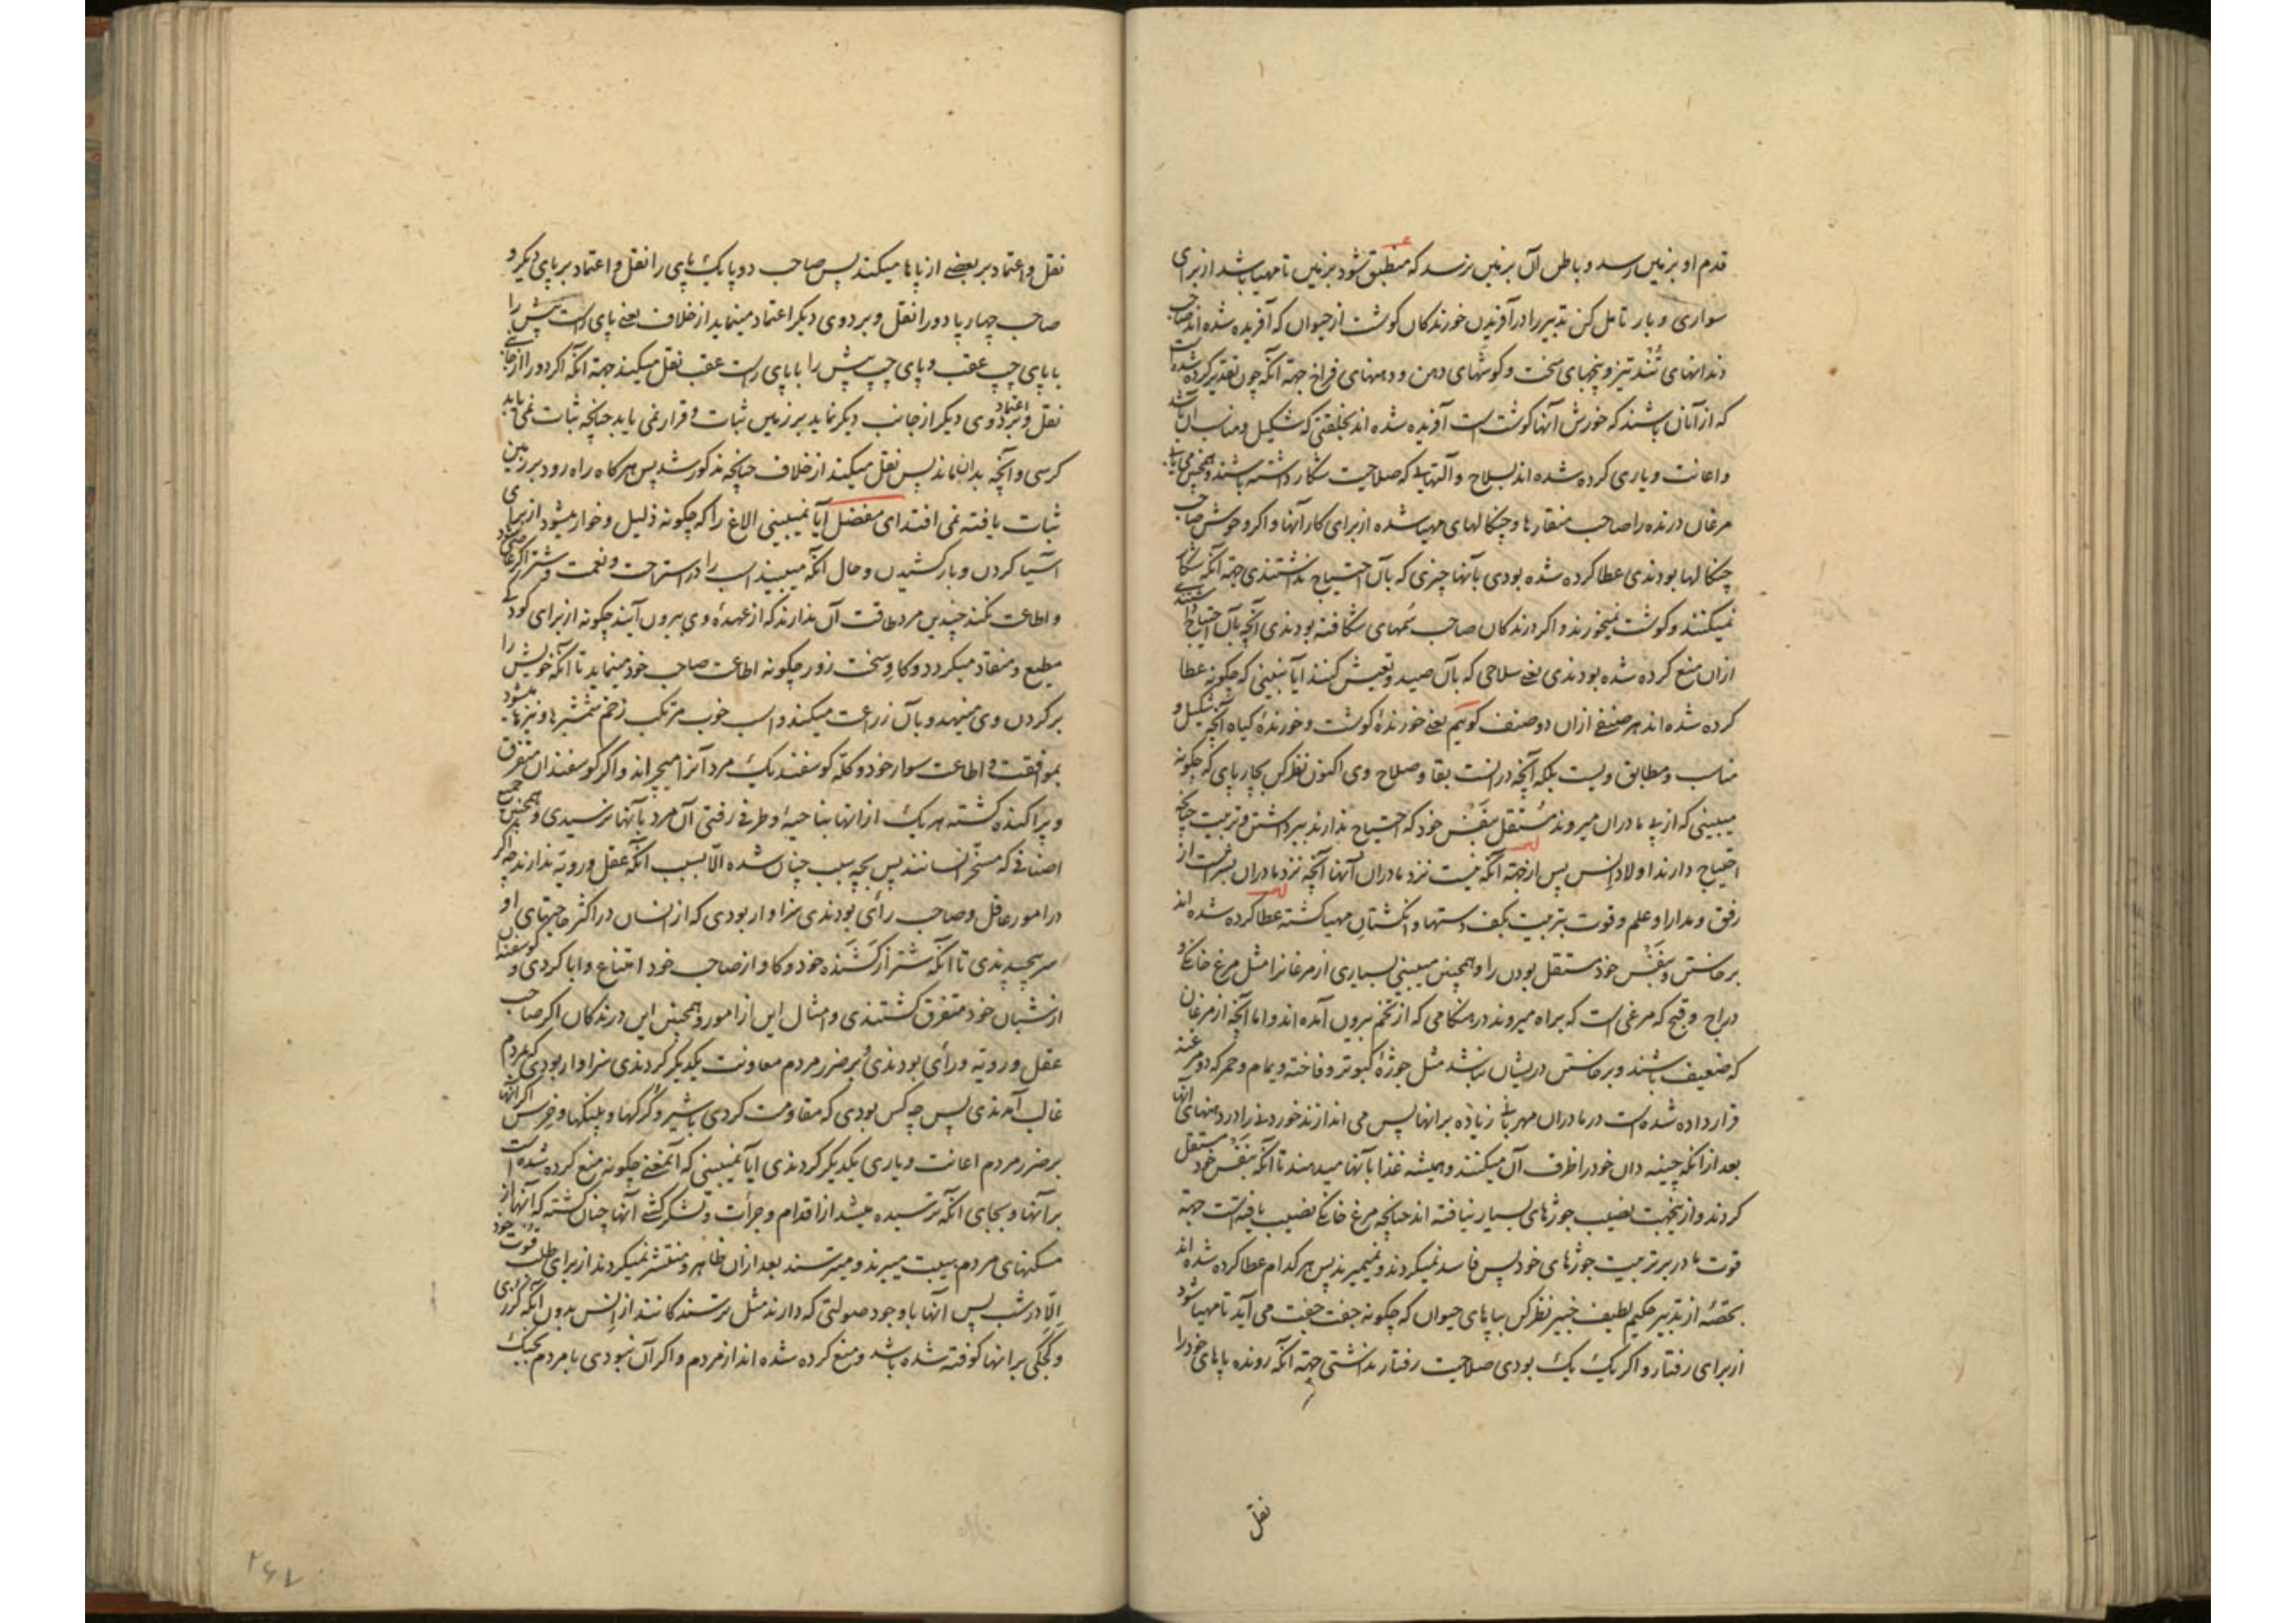 قدم او بزمین رسد و باطن آن بزمین نرسد که منطبق شود بزمین تا مهیا باشد از برای
سواری و بار تامل کن تدبیر را در آفریدن خورندکان کوشت از حیوان که آفریده شده اند صاحب
دندانهای تُند تیز و پنجهای سخت و کوشهای دهن و دهنهای فراخ جهة آنکه چون تقدیر کرده شده است
که از آنان باشند که خورش آنها کوشت است آفریده شده اند بخلقتی که شکیل و مناسب آن باشد
و اعانت و یاری کرده شده اند بسلاح و آلتهایی که صلاحیت شکار داشته باشند و همچنین می یابی
مرغان درنده را صاحب منقارها و چنکالهای مهیا شده از برای کار آنها و اکر وحوش صاحب
چنکالها بودندی عطا کرده شده بودی بآنها چیزی که بآن احتیاج نداشتندی جهة آنکه شکار
نمیکنند و کوشت نمیخورند و اکر درندکان صاحب سُمهای شکافته بودندی آنچه بآن احتیاج داشتندی
از ان منع کرده شده بودندی یعنی سلاحی که بآن صید و تعیش کنند ایا نبینی که چکونه عطا
کرده شده اند هر صنفی از ان دو صنف کوییم یعنی خورندهٔ کوشت و خورندهٔ کیاه آنچه شکیل و
مناسب و مطابق ویست بلکه آنچه در انست بقا و صلاح وی اکنون نظر کن بچارپای که چکونه
میبینی که از پی مادران میروند مستقل بنفس خود که احتیاج ندارند ببرداشتن و تربیت چنانچه
احتیاج دارند اولاد انس پس از جهة آنکه نیست نزد مادران آنها آنچه نزد مادران بشر است از
رفق و مدارا و علم و قوت بتربیت بکف دستها و انکشتان مهیا کشته عطا کرده شده اند
برخاستن و بنفس خود مستقل بودن را و همچنین میبینی بسیاری از مرغانرا مثل مرغ خانکی و
دراج و قبج که مرغی است که براه میروند در هنکامی که از تخم بیرون آمده اند و اما آنچه از مرغان
که ضعیف باشند و برخاستن در یشان نباشد مثل جوزهٔ کبوتر و فاخته و یمام و حمر که دو مرغند
قرار داده شده است در مادران مهربانی زیاده برانها پس می اندازند خوردنی را در دهنهای آنها
بعد از انکه چینه دان خود را ظرف آن میکنند و همیشه غذا بآنها میدهند تا آنکه بنفس خود مستقل
کردند و از ینجهت نصیب جوزهای بسیار نیافته اند چنانچه مرغ خانکی نصیب یافته است جهة
قوت مادر بر تربیت جوزهای خود پس فاسد نمیکردند و نمیمیرند پس هر کدام عطا کرده شده اند
بحصّهٔ از تدبیر حکیم لطیف خبیر نظر کن بپاهای حیوان که چکونه جفت جفت می آید تا مهیا شود
از برای رفتار و اکر یک یک بودی صلاحیت رفتار نداشتی جهة آنکه رونده پاهای خود را
نقل
نقل و اعتماد بر بعضی از پاها میکند پس صاحب دو پا یک پای را نقل و اعتماد بر پای دیکر و
صاحب چهار پا دو را نقل و بر دوی دیکر اعتماد مینماید از خلاف یعنی پای راست پیش را
با پای چپ عقب و پای چپ پیش را با پای راست عقب نقل میکند جهة آنکه اکر دو را از جانبی
نقل و اعتماد بر دوی دیکر از جانب دیکر نماید بر زمین ثبات و قرار نمی یابد چنانچه ثبات نمی یابد
کرسی و آنچه بدان ماند پس نقل میکند از خلاف چنانچه مذکور شد پس هرکاه راه رود بر زمین
ثبات یافته نمی افتد ای مفضل آیا نمیبینی الاغ را که چکونه ذلیل و خوار میشود از برای
آسیا کردن و بار کشیدن و حال آنکه میبیند اسب را در استراحت و نعمت و شتر اکر عاصی کردد
و اطاعت نکند چندین مرد طاقت آن ندارند که از عهدهٔ وی بیرون آیند چکونه از برای کودکی
مطیع و منقاد میکردد و کاو سخت زور چکونه اطاعت صاحب خود مینماید تا آنکه خویش را
بر کردن وی مینهد و بآن زراعت میکند و اسب خوب مرتکب زخم شمشیرها و نیزها میشود
بموافقت و اطاعت سوار خود و کلّه کوسفند یک مرد آنرا میچراند و اکر کوسفندان متفرق
و پراکنده کشته هر یک از انها بناحیهٔ و طرفی رفتی آن مرد بآنها نرسیدی و همچنین جمیع
اصنافی که مسخّر انسانند پس بچه سبب چنان شده الّا بسبب آنکه عقل و رویّه ندارند چه اکر
در امور عاقل و صاحب رأی بودندی سزاوار بودی که از انسان در اکثر حاجتهای او
سر پیچیدندی تا آنکه شتر از کشنده خود و کاو از صاحب خود امتناع و ابا کردی و کوسفندان
از شبان خود متفرق کشتندی و امثال این از امور و همچنین این درندکان اکر صاحب
عقل و رویّه و رأی بودندی و بر ضرر مردم معاونت یکدیکر کردندی سزاوار بودی که بر مردم
غالب آمدندی پس چه کس بودی که مقاومت کردی با شیر و کُرکها و پلنکها و خرس اکر آنها
بر ضرر مردم اعانت و یاری یکدیکر کردندی ایا نمیبینی که آنمعنی چکونه منع کرده شده است
بر آنها و بجای آنکه ترسیده میشد از اقدام و جرأت و لشکرکشی آنها چنان کشته که آنها از
مسکنهای مردم هیبت میبرند و میترسند بعد از ان ظاهر و منتشر نمیکردند از برای طلب قوت خود
الّا در شب پس آنها با وجود صولتی که دارند مثل ترسندکانند از انس بدون آنکه کرزی
بر انها کوفته شده باشد و منع کرده شده اند از مردم و اکر آن نبودی با مردم بجنک
۲۶۷